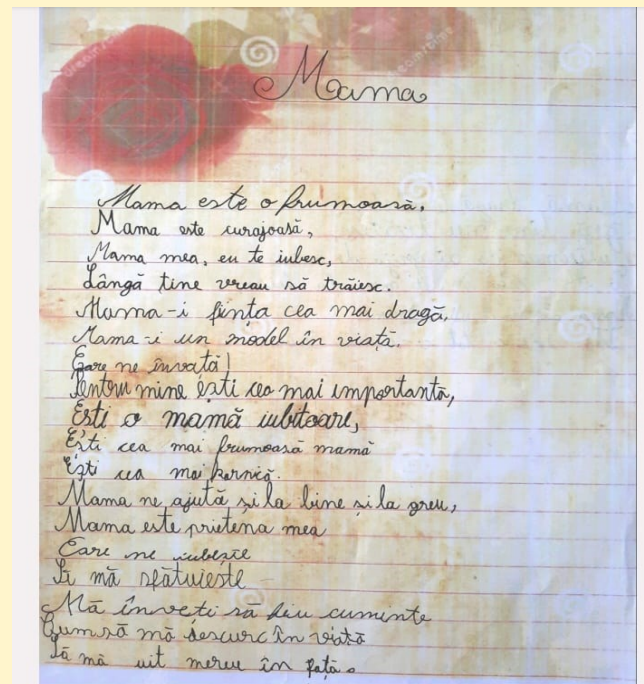 Mama
Mama este o frumoasă,
Mama este curajoasă,
Mama mea, eu te iubesc,
Lângă tine vreau să trăiesc.
Mama-i ființa cea mai dragă,
Mama-i un model în viață.
Care ne învață!
Pentru mine ești cea mai importantă,
Ești o mamă iubitoare,
Ești cea mai frumoasă mamă
Ești cea mai harnică.
Mama ne ajută și la bine și la greu,
Mama este prietena mea
Care ne iubește
Și mă sfătuiește
Mă înveți să fiu cuminte
Cum să mă descurc în viață
Să mă uit mereu în față.